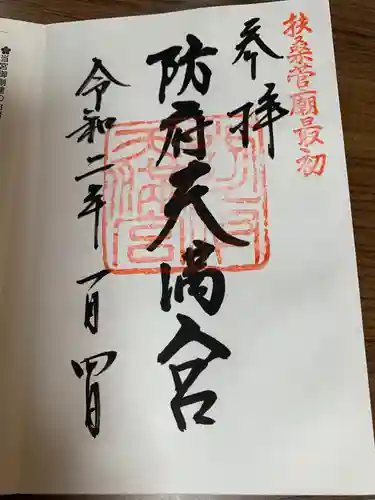 扶桑菅廟最初
参拝
防府天満宮
令和二年一月四日